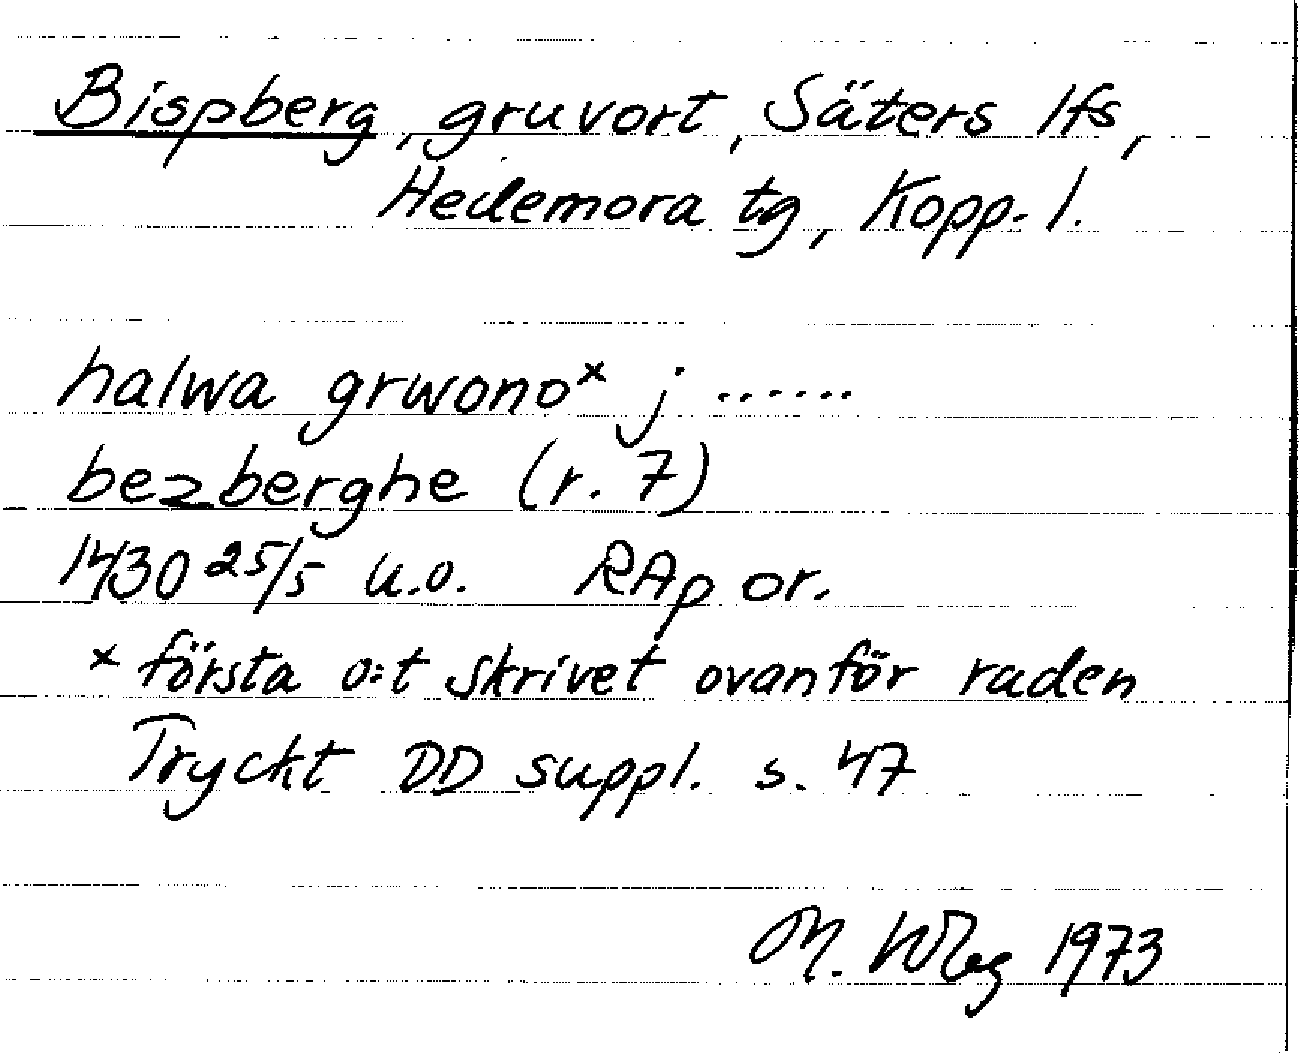 Bispberg, gruvort, Säters lfs,
Hedemora tg, Kopp. l.
halwa grwono x j ......
bezberghe (r. 7)
1430 25/5 u.o. RAp or.
x första o:t skrivet ovanför raden
Tryckt DD suppl. s. 47
M. 1973